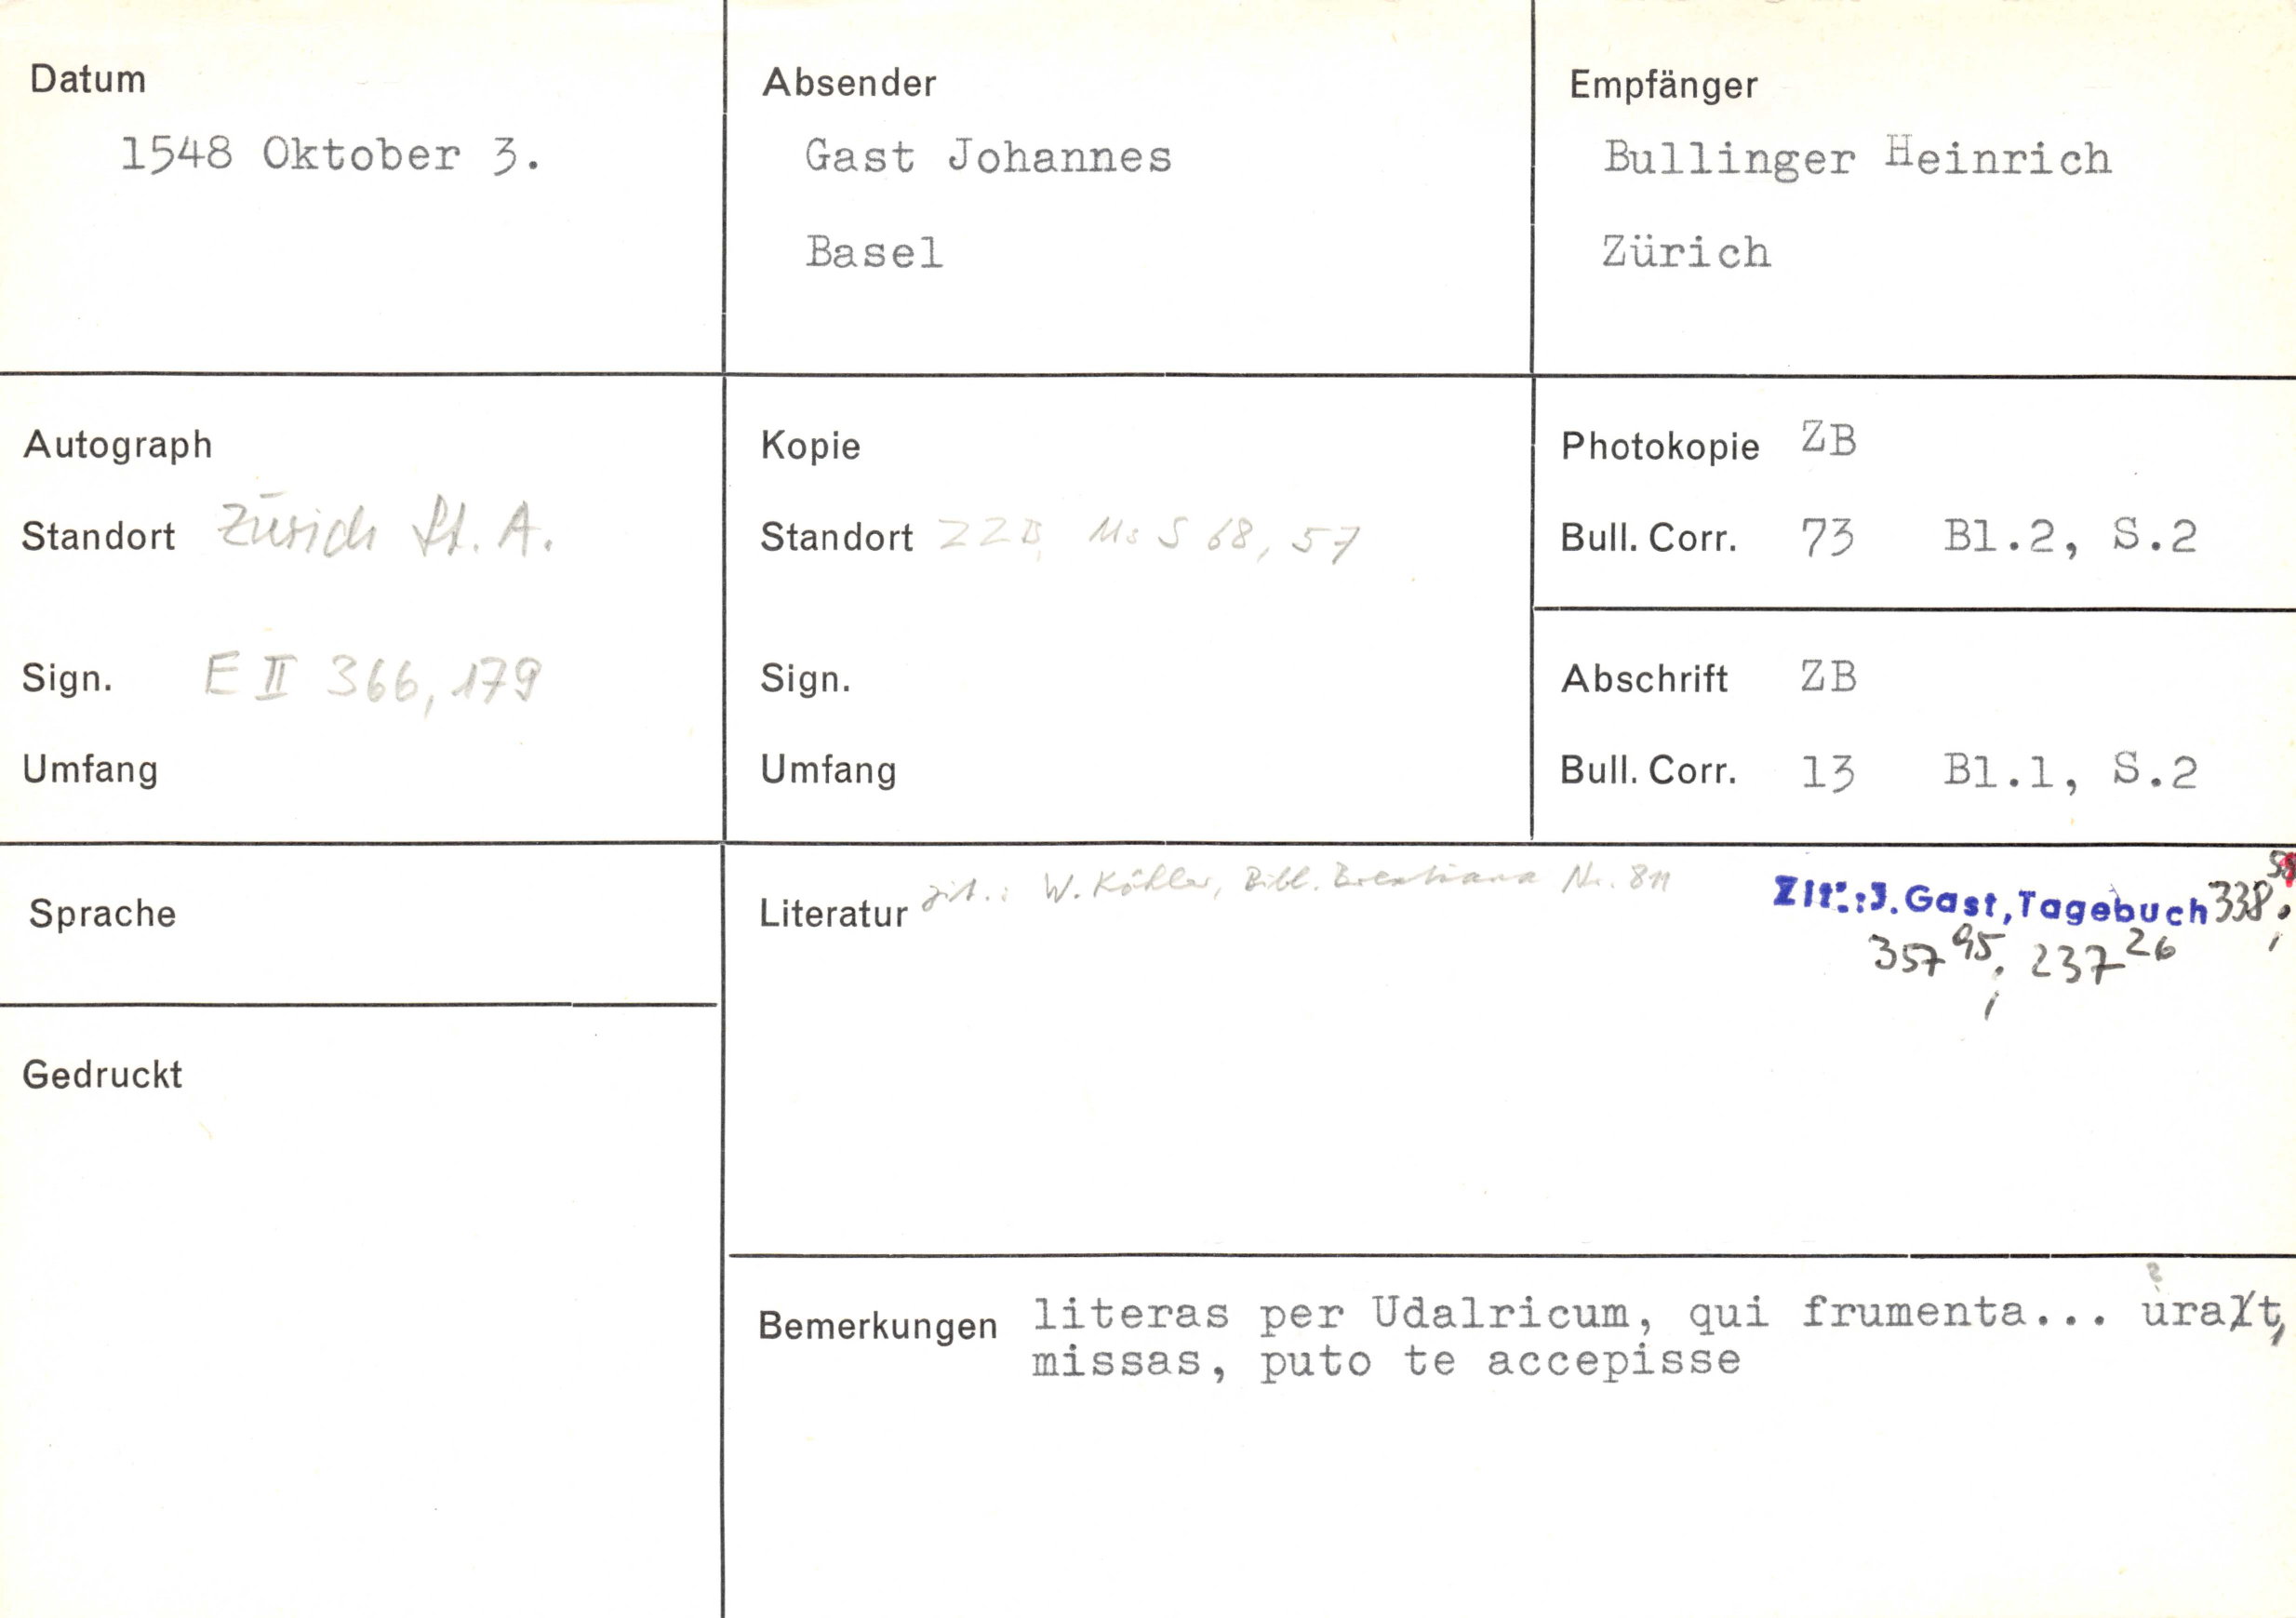 Datum
1548 Oktober 3.
Absender
Gast Johannes
Basel
Empfänger
Bullinger Heinrich
Zürich
Autograph
Standort Zürich St. A.
Sign. E II 366, 179
Umfang
Kopie
Standort ZZB, Ms S 68, 57
Sign.
Umfang
Photokopie ZB
Bull. Corr. 73 Bl.2, S.2
Abschrift ZB
Bull. Corr. 13 Bl.1, S.2
Sprache
Gedruckt
Literatur zit.: W. Köhler, Bibl. Brentiana Nr. 811
Zit.:J.Gast,Tagebuch 338
357 95; 237 26
Bemerkungen literas per Udalricum, qui frumenta...
missas, puto te accepisse